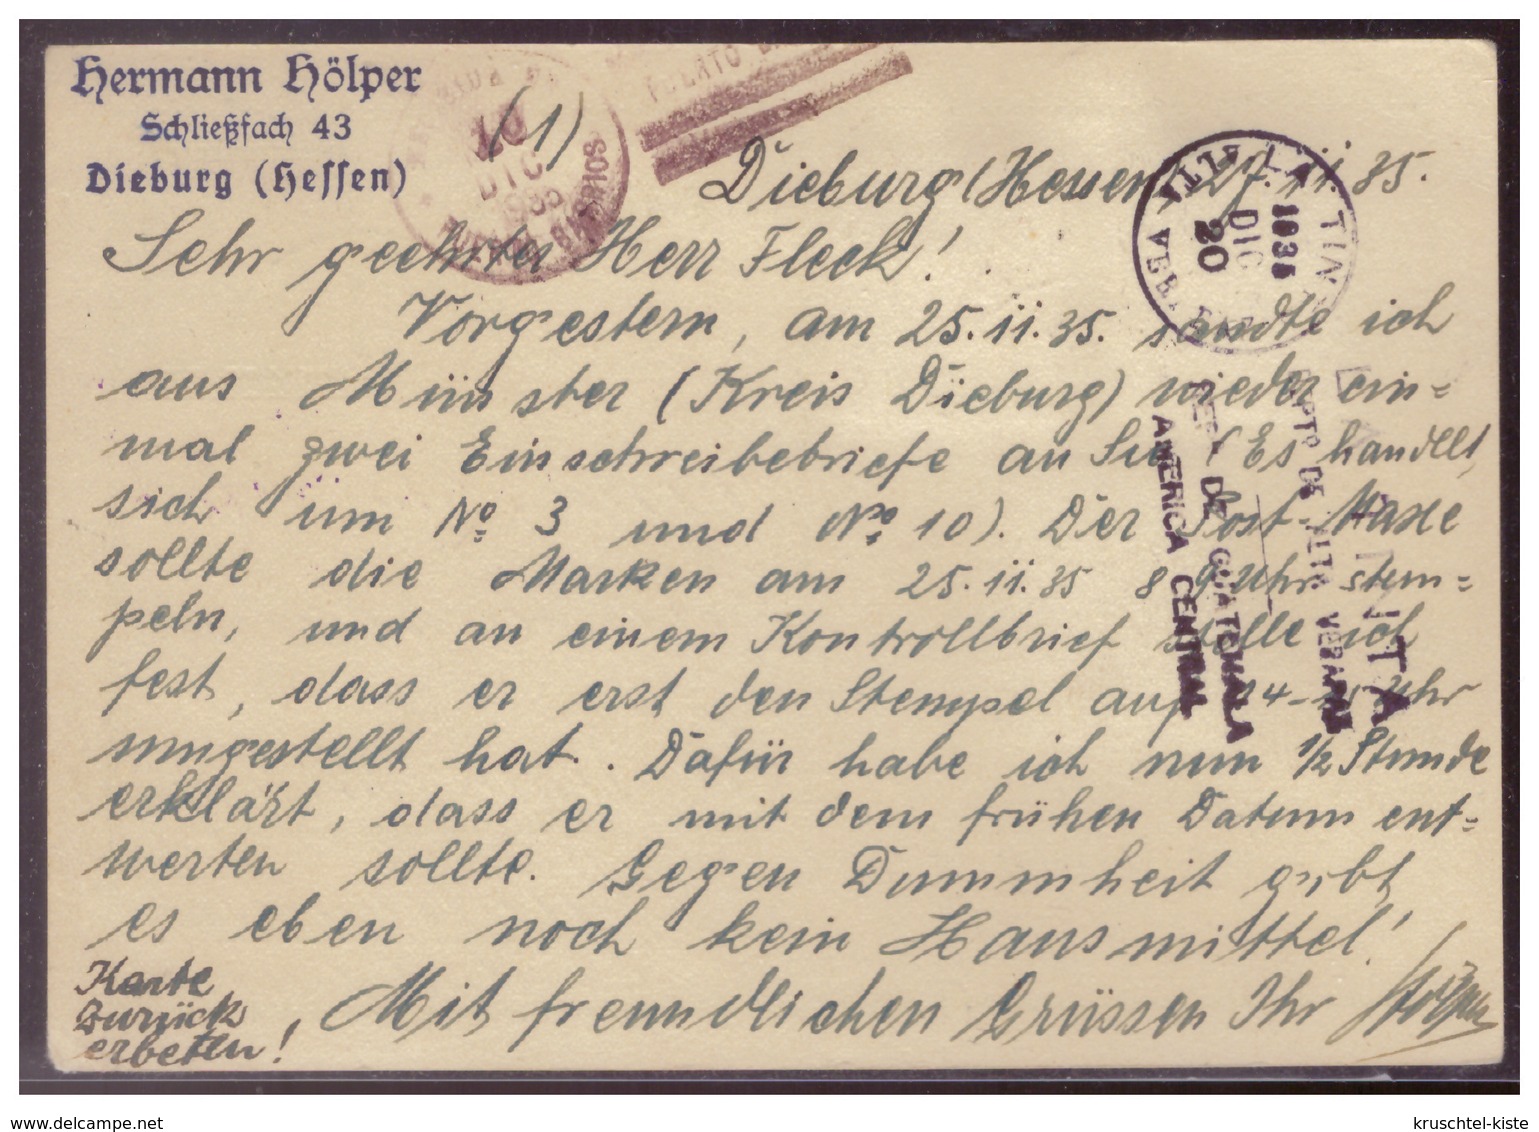 Hermann Hölper
Schließfach 43
Dieburg (Hessen)
(1)
Dieburg (Hessen) 27.11.35.
Sehr geehrter Herr Fleck!
Vorgestern, am 25.11.35. sandte ich
aus Münster (Kreis Dieburg) wieder ein=
mal zwei Einschreibebriefe an Sie (Es handelt
sich um No 3 und No 10). Der Post-
sollte die Marken am 25.11.35 8 Uhr stem=
peln, und an einem Kontrollbrief stelle ich
fest, dass er erst den Stempel auf Uhr
umgestellt hat. Dafür habe ich nun 1/2 Stunde
erklärt, dass er mit dem frühen Datum ent=
werten sollte. Gegen Dummheit gibt
es eben noch kein Hausmittel!
Mit freundlichen Grüssen Ihr Hölper
Karte
zurück
erbeten!
DIC
1935
BARRIOS
1935
DIC
20
DEPTO DE ALTA VERAPAZ
REP. DE GUATEMALA
AMERICA CENTRAL
www.delcampe.net
kruschtel-kiste